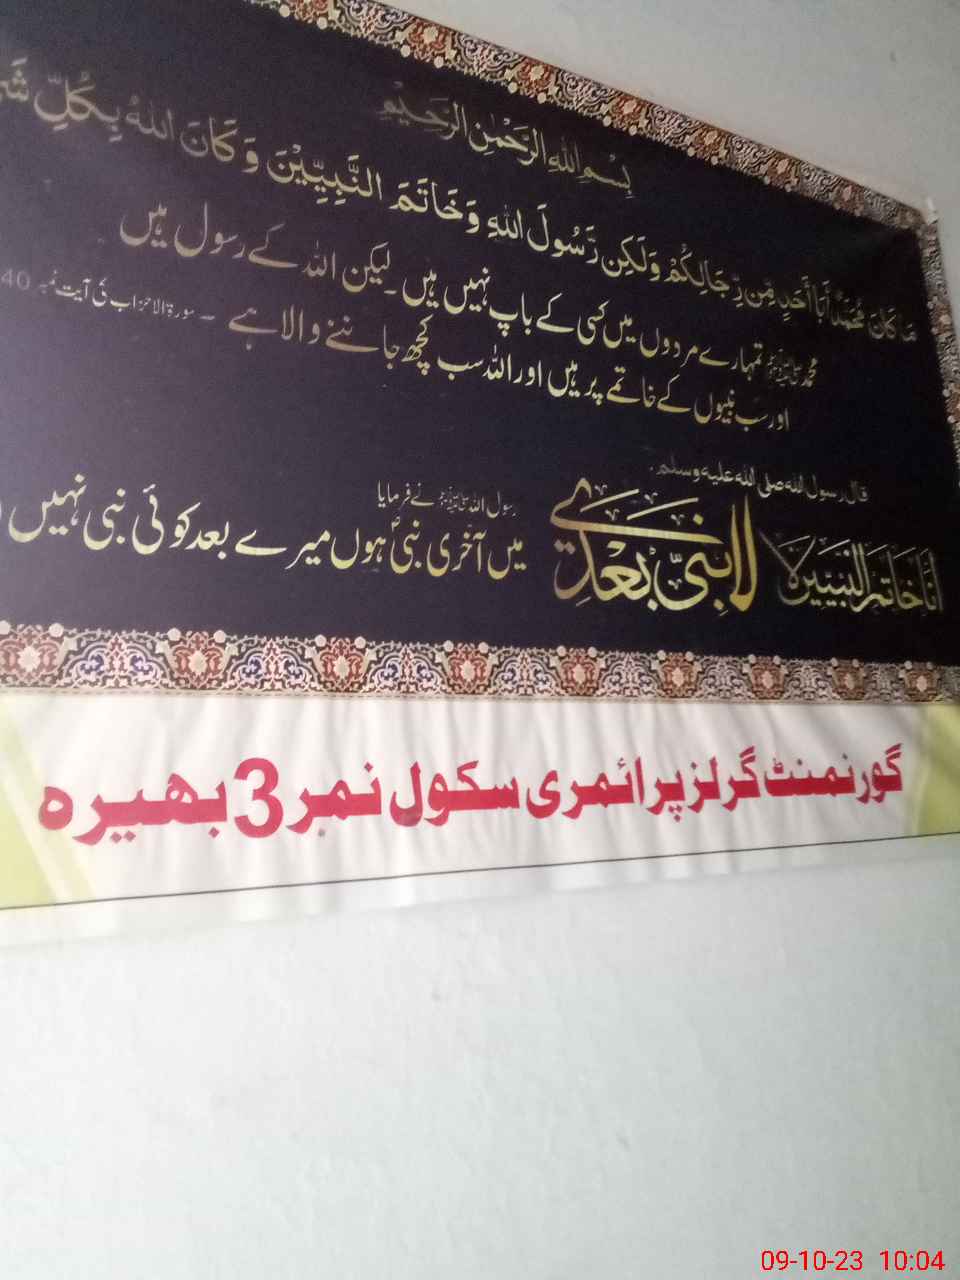 بِسْمِ اللهِ الرَّحْمٰنِ الرَّحِيْمِ
مَا كَانَ مُحَمَّدٌ اَبَا اَحَدٍ مِّنْ رِّجَالِكُمْ وَلٰكِنْ رَّسُوْلَ اللهِ وَخَاتَمَ النَّبِيّٖنَ وَكَانَ اللهُ بِكُلِّ
محمد ﷺ تمہارے مردوں میں کسی کے باپ نہیں ہیں۔ لیکن اللہ کے رسول ہیں
اور سب نبیوں کے خاتمے پر ہیں اور اللہ سب کچھ جاننے والا ہے ۔ سورۃ الاحزاب کی آیت نمبر 40
قال رسول الله صلى الله عليه وسلم.
اَنَا خَاتَمُ النَّبِيّٖنَ لَا
لَا نَبِیَّ بَعْدِیْ
رسول اللہ ﷺ نے فرمایا
میں آخری نبی ہوں میرے بعد کوئی نبی نہیں
گورنمنٹ گرلز پرائمری سکول نمبر 3 بھیرہ
09-10-23 10:04